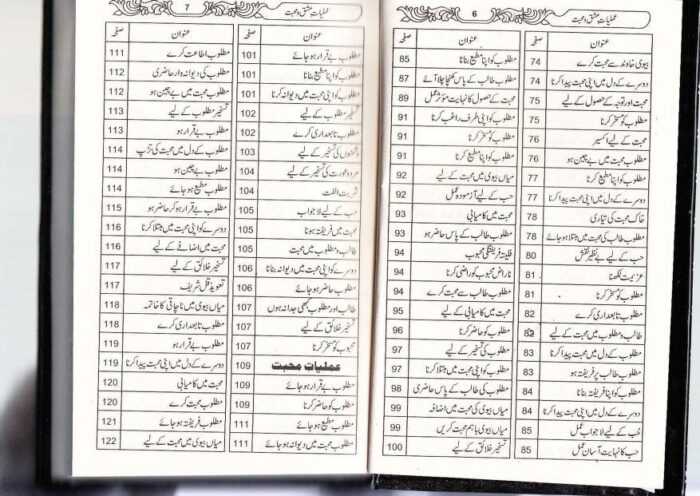 عملیات عشق و محبت 6
عنوان صفحہ
بیوی خاوند سے محبت کرے 74
دوسرے کے دل میں اپنی محبت پیدا کرنا 74
محبت اور توجہ کے حصول کے لیے 75
مطلوب کو مسخر کرنا 75
محبت کے لیے اکسیر 76
مطلوب محبت میں بے چین ہو 76
مطلوب کو اپنا مطیع کرنا 77
دوسرے کے دل میں اپنی محبت پیدا کرنا 77
خاک محبت کی تیاری 78
مطلوب طالب کی محبت میں مبتلا ہو جائے 78
حب کے لیے بے نظیر نقش 80
عزیمت لکھنا 81
مطلوب کو مسخر کرنا 81
مطلوب تابعداری کرے 82
طالب و مطلوب میں محبت کے لیے 82
مطلوب کے دل میں محبت پیدا کرنا 83
مطلوب طالب پر فریفتہ ہو 83
مطلوب کو اپنا فریفتہ بنانا 84
دوسرے کے دل میں اپنی محبت پیدا کرنا 84
حُب کے لیے لاجواب عمل 85
حب کا نہایت آسان عمل 85
عنوان صفحہ
مطلوب کو اپنا مطیع بنانا 85
مطلوب طالب کے پاس کھنچا چلا آئے 87
محبت کے حصول کا نہایت مؤثر عمل 89
مطلوب کو اپنی طرف راغب کرنا 91
مطلوب کو مسخر کرنا 91
مطلوب کو اپنا مطیع کرنا 91
میاں بیوی میں محبت کے لیے 92
حب کے لیے آزمودہ عمل 92
محبت میں کامیابی 93
مطلوب طالب کے پاس حاضر ہو 93
فلیتہ فریفتگی محبوب 94
ناراض محبوب کو راضی کرنا 94
مطلوب طالب سے محبت کرے 94
محبت میں کامیابی کے لیے 95
مطلوب کو حاضر کرنا 96
تسخیر مطلوب کے لیے 97
دوسرے کو اپنی محبت میں مبتلا کرنا 97
مطلوب کی طالب کے پاس حاضری 98
میاں بیوی کی محبت میں اضافہ 99
میاں بیوی باہم محبت کریں 99
تسخیر خلائق کے لیے 100
عملیات عشق و محبت 7
عنوان صفحہ
مطلوب بے قرار ہو جائے 101
مطلوب کو اپنا مطیع بنانا 101
مطلوب کو اپنی محبت میں دیوانہ کرنا 101
تسخیر مطلوب کے لیے 102
مطلوب تابعداری کرے 102
دشمنوں کی تسخیر کے لیے 103
مرد و عورت کی تسخیر کے لیے 104
شربت الفت 104
حب کے لیے لاجواب 105
محبت میں فریفتہ ہونا 105
طالب و مطلوب میں محبت 105
دوسرے کو اپنی محبت میں دیوانہ بنانا 106
مطلوب حاضر ہو جائے 106
طالب اور مطلوب کبھی جدا نہ ہوں 107
تسخیر خلائق کے لیے 107
محبوب کو مسخر کرنا 107
عملیات محبت 109
مطلوب بے قرار ہو جائے 109
مطلوب کو حاضر کرنا 109
مطلوب مطیع ہو جائے 111
مطلوب محبت میں دیوانہ ہو جائے 111
عنوان صفحہ
مطلوب اطاعت کرے 111
مطلوب کی دیوانہ وار حاضری 112
مطلوب محبت میں بے چین ہو 112
تسخیر مطلوب کے لیے 113
مطلوب بے قرار ہو 113
مطلوب کے دل میں محبت کی تڑپ 114
مطلوب بے چین ہو 114
مطلوب مطیع ہو جائے 114
مطلوب بے قرار ہو کر حاضر ہو 115
دوسرے کو اپنی محبت میں مبتلا کرنا 116
محبت میں اضافے کے لیے 116
تسخیر خلائق کے لیے 117
تعویذ قل شریف 117
میاں بیوی میں ناچاقی کا خاتمہ 118
مطلوب تابعداری کرے 118
مطلوب بے قرار ہو 119
دوسرے کے دل میں اپنی محبت پیدا کرنا 119
محبت میں کامیابی 120
مطلوب محبت کرے 120
مطلوب فریفتہ ہو جائے 121
میاں بیوی میں محبت کے لیے 122